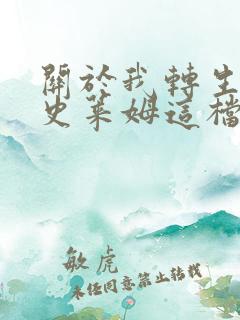 關於我轉生
史萊姆這檔
敏虎
未任同意禁止轉載